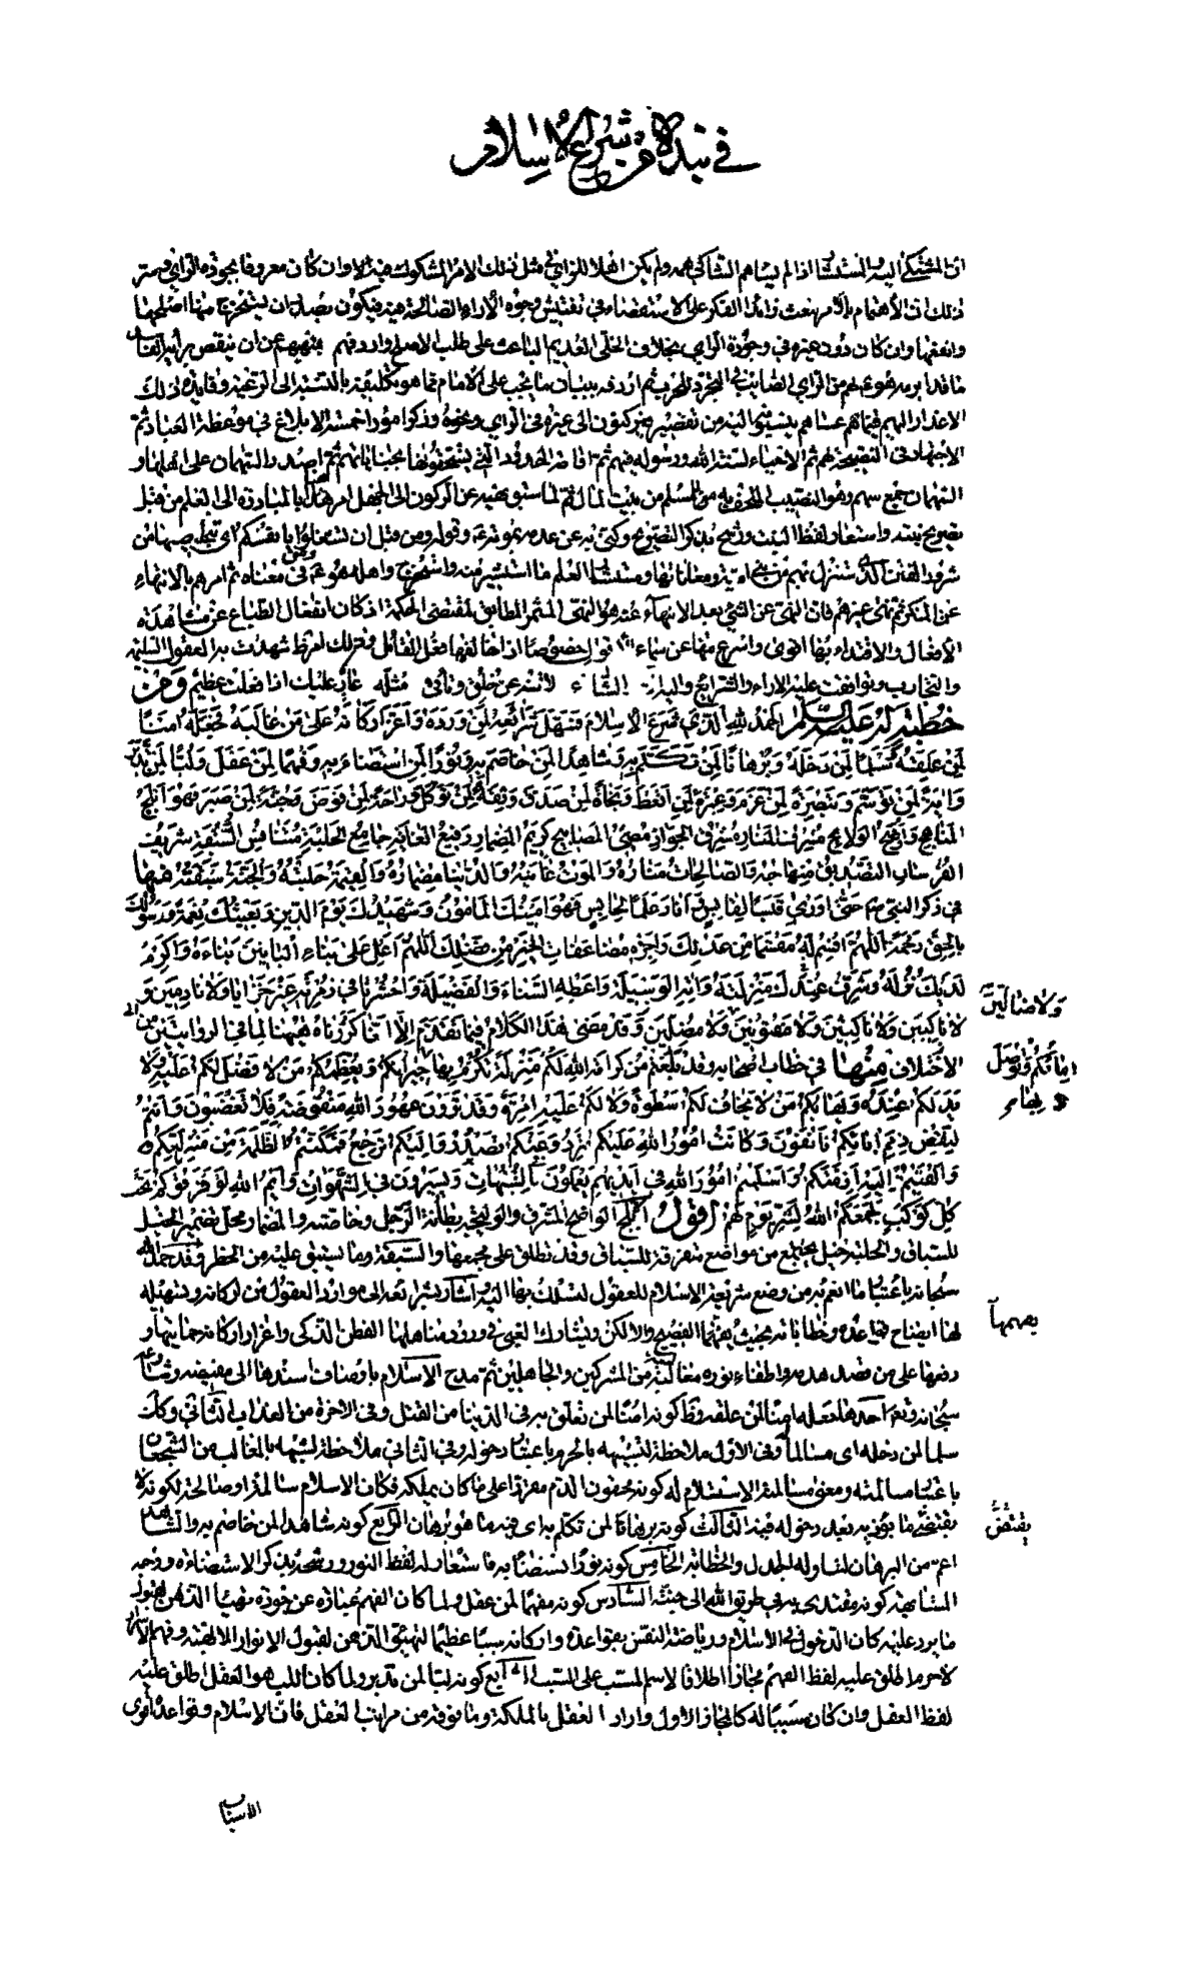 في نبذة من شرايع الاسلام
ان المشتكي اليه والمستشار اذا لم يساهم الشاكي همه ولم يكن اهلا للراي في مثل ذلك الامر المشكو فيه الا وان كان معروفا بجودة الراي وسر
ذلك ان الاهتمام بالامر يبعث رائد الفكر على الاستقصاء في تفتيش وجوه الآراء الصالحة فيه فيكون بصدد ان يستخرج منها اصلحها
وانفعها وان كان دون غيره في وجودة الراي بخلاف الخلي العديم الباعث على طلب الاصلح واردفهم بنهيهم عن ان ينقض برأيه الفاسد
ما قد ابرمه هو لهم من الراي الصائب ثم اردفه ببيان ما يجب على الامام مما هو تكليفه بالنسبة الى الرعية وفايدة ذلك
الاعذار اليهم فيما عساهم ينسبونه اليه من تقصير فيركنون الى غيره في الراي ونحوه وذكر امورا خمسة الابلاغ في موعظة العباد ثم
الاجتهاد في النصيحة لهم ثم الاحياء لسنة الله ورسوله فيهم ثم اقامة الحدود التي يستحقونها بجناياتهم ثم اصدار السهمان على اهلها و
السهمان جمع سهم وهو النصيب المستحق به للمسلم من بيت المال ثم لما سبق نهيه عن الركون الى الجهل امر هنا بالمبادرة الى العلم من قبل
تصويح نبته واستعار لفظ النبت ورشح بذكر التصويح وكنى به عن عدمه بموته وقوله ومن قبل ان تشغلوا بانفسكم اي بتخليصها من
شرور الفتن التي ستنزل بهم من بني امية ومعاناتها ومستثار العلم ما استثير منه واستخرج واهله هو ومن في معناه ثم امرهم بالانتهاء
عن المنكر ثم نهى غيرهم فان النهي عن الشيء بعد الانتهاء عنه هو النهي المثمر المطابق لمقتضى الحكمة اذ كان انفعال الطباع عن مشاهدة
الافعال والاقتداء بها اقوى واسرع منها عن سماع الاقوال خصوصا اذا خالفها فعل القائل وذلك امر ظ شهدت به العقول السليمة
والتجارب وتوافقت عليه الآراء والشرايع واليه اشار الشاعر لا تنه عن خلق وتأتي مثله عار عليك اذا فعلت عظيم ومن
خطبة له عليه السلام الحمد لله الذي شرع الاسلام فسهل شرائعه لمن ورده واعز اركانه على من غالبه فجعله امنا
لمن علقه وسلما لمن دخله وبرهانا لمن تكلم به وشاهدا لمن خاصم به ونورا لمن استضاء به وفهما لمن عقل ولبا لمن تدبر
وآية لمن توسم وتبصرة لمن عزم وعبرة لمن اتعظ ونجاة لمن صدق وثقة لمن توكل وراحة لمن فوض وجنة لمن صبر فهو ابلج
المناهج واضح الولايج مشرف المنار مشرق الجواد مضيء المصابيح كريم المضمار رفيع الغاية جامع الحلبة متنافس السبقة شريف
الفرسان التصديق منهاجه والصالحات مناره والموت غايته والدنيا مضماره والقيمة حلبته والجنة سبقته منها
في ذكر النبي ص حتى اورى قبسا لقابس وانار علما لحابس فهو امينك المامون وشهيدك يوم الدين وبعيثك نعمة ورسولك
بالحق رحمة اللهم اقسم له مقسما من عدلك واجزه مضاعفات الخير من فضلك اللهم اعل على بناء البانين بناءه واكرم
لديك نزله وشرف عندك منزلته وآته الوسيلة واعطه السناء والفضيلة واحشرنا في زمرته غير خزايا ولا نادمين و
لا ناكبين ولا ناكثين ولا مفتونين ولا مضلين وقد مضى هذا الكلام فيما تقدم الا اننا كررناه هيهنا لما في الروايتين من
ولا ضالين
الاختلاف منها في خطاب اصحابه وقد بلغتم من كرامة الله لكم منزلة تكرم بها اماؤكم وتوصل بها جيرانكم ويعظمكم من لا فضل لكم عليه ولا
اماؤكم وتوصل
يد لكم عنده ويهابكم من لا يخاف لكم سطوة ولا لكم عليه امرة وقد ترون عهود الله منقوضة فلا تغضبون وانتم
لنقض ذمم آبائكم تانفون وكانت امور الله عليكم ترد وعنكم تصدر واليكم ترجع فمكنتم الظلمة من منزلتكم
والقيتم اليهم ازمتكم واسلمتم امور الله في ايديهم يعملون بالشبهات ويسيرون في الشهوات وايم الله لو فرقوكم تحت
كل كوكب لجمعكم الله لشر يوم لهم اقول الابلج الواضح المشرق والوليجة بطانة الرجل وخاصته والمضمار محل تضمير الخيل
للسباق والحلبة خيل تجتمع من مواضع متفرقة للسباق وقد تطلق على مجمعها والسبقة وما يستبق عليه من الخطر وقد حمد الله
سبحانه باعتبار ما انعم به من وضع شريعة الاسلام للعقول لتسلك بها اليه واشار بشرايعه الى موارد العقول من اركانه وبتسهيله
لها ايضاح قواعده وخطاباته بحيث يفهمها الفصيح والالكن ويشارك الغبي في ورود مناهلها الفطن الذكي واعزاز اركانه حمايتها و
يفهمها
رفعها على من قصد هدمه واطفاء نوره مغالبة من المشركين والجاهلين ثم مدح الاسلام باوصاف اسندها الى مفيضه وشارعه
سبحانه وتع احدها جعله امنا لمن علقه وظ كونه امنا لمن تعلق به في الدنيا من القتل وفي الآخرة من العذاب الثاني وكونه
سلما لمن دخله اي مسالما وفي الاول ملاحظة لتشبيهه بالحرم باعتبار دخوله وفي الثاني ملاحظة لشبهه بالمغالب من الشجعان
باعتبار مسالمته ومعنى مسالمة الاسلام له كونه محقون الدم مقرا على ما كان يملكه فكان الاسلام سالمه او صالحه لكونه لا
يقتضي ما يؤذيه بعد دخوله فيه الثالث كونه برهانا لمن تكلم به اي فيه ما هو برهان الرابع كونه شاهدا لمن خاصم به والشاهد
يقتض
اعم من البرهان لتناوله الجدل والخطابة الخامس كونه نورا يستضاء به فاستعار له لفظ النور ورشحه بذكر الاستضاءة ووجه
المشابهة كونه مقتدى به في طريق الله الى جنته السادس كونه مفهما لمن عقل ولما كان الفهم عبارة عن جودة تهيأ الذهن لقبول
ما يرد عليه كان الدخول في الاسلام ورياضة النفس بقواعده واركانه سببا عظيما لتهيئ الذهن لقبول الانوار الالهية وفهم الاسرار
لا جرم اطلق عليه لفظ الفهم مجازا اطلاقا لاسم المسبب على السبب السابع كونه لبا لمن تدبر ولما كان اللب هو العقل اطلق عليه
لفظ العقل وان كان مسببا له كالمجاز الاول واراد العقل بالملكة وما فوقه من مراتب العقل فان الاسلام وقواعده اقوى
الاسباب